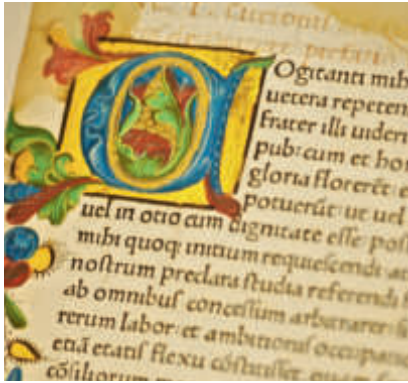 Ogitanti mih
uetera repeten
frater illi uideri
pub: cum et ho
gloria florerēt: e
potuerūt: ut uel
uel in otio cum dignitate esse pos
mihi quoq; initium requiescendi: at
nostrum preclara studia referendi
ab omnibus concessum arbitrarer: si
rerum labor: et ambitionis occupatio
etiā etatis flexu cōstitisset
cōsiliorum